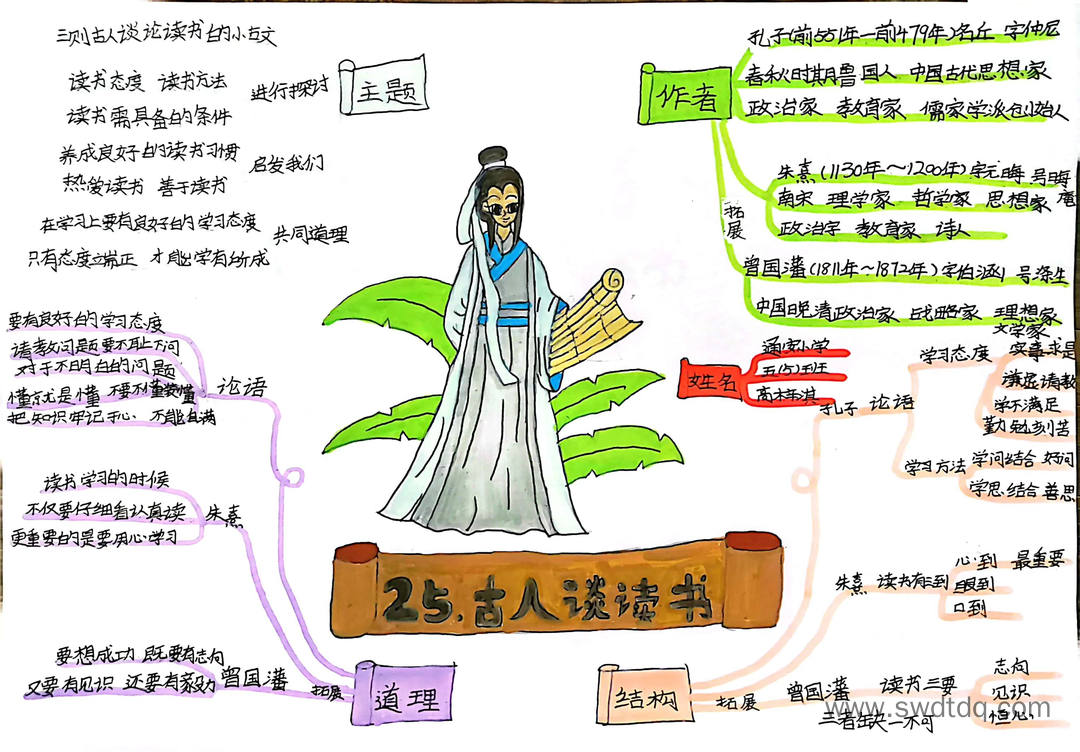 三则古人谈论读书的小古文
读书态度 读书方法
进行探讨
读书需具备的条件
养成良好的读书习惯
启发我们
热爱读书 善于读书
在学习上要有良好的学习态度
共同道理
只有态度端正 才能学有所成
主题
作者
孔子(前551年—前479年)名丘 字仲尼
春秋时期鲁国人 中国古代思想家
政治家 教育家 儒家学派创始人
朱熹(1130年~1200年)字元晦 号晦庵
南宋 理学家 哲学家 思想家
政治字 教育家 诗人
拓展
曾国藩(1811年~1872年)字伯涵 号涤生
中国晚清政治家 战略家 理想家
文学家
姓名
通安小学
要有良好的学习态度
请教问题要不耻下问
对于不明白的问题
懂就是懂 要不懂装懂
把知识牢记于心 不能自满
论语
读书学习的时候
不仅要仔细看认真读
更重要的是要用心学习
朱熹
要想成功 既要有志向
又要有见识 还要有毅力
曾国藩
拓展
道理
25.古人谈读书
孔子 论语
学习态度
实事求是
谦虚请教
学不满足
勤勉刻苦
学习方法
学问结合 好问
学思结合 善思
朱熹 读书有三到
心到 最重要
眼到
口到
结构
拓展
曾国藩 读书三要
三者缺一不可
志向
见识
恒心
www.swdtdq.com